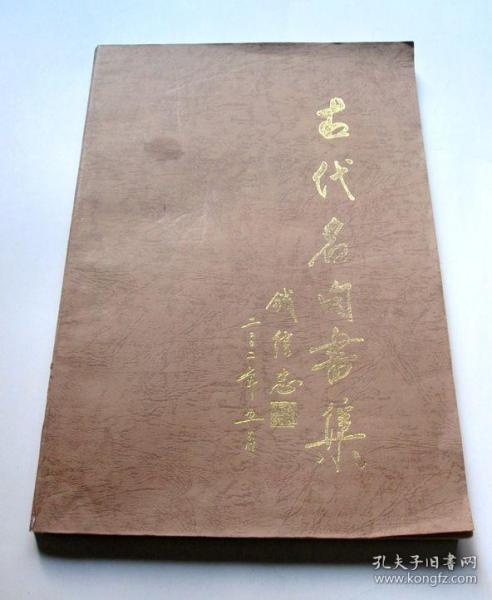 古代名句书集
钱信忠
二〇〇二年五月
孔夫子旧书网
www.kongfz.com